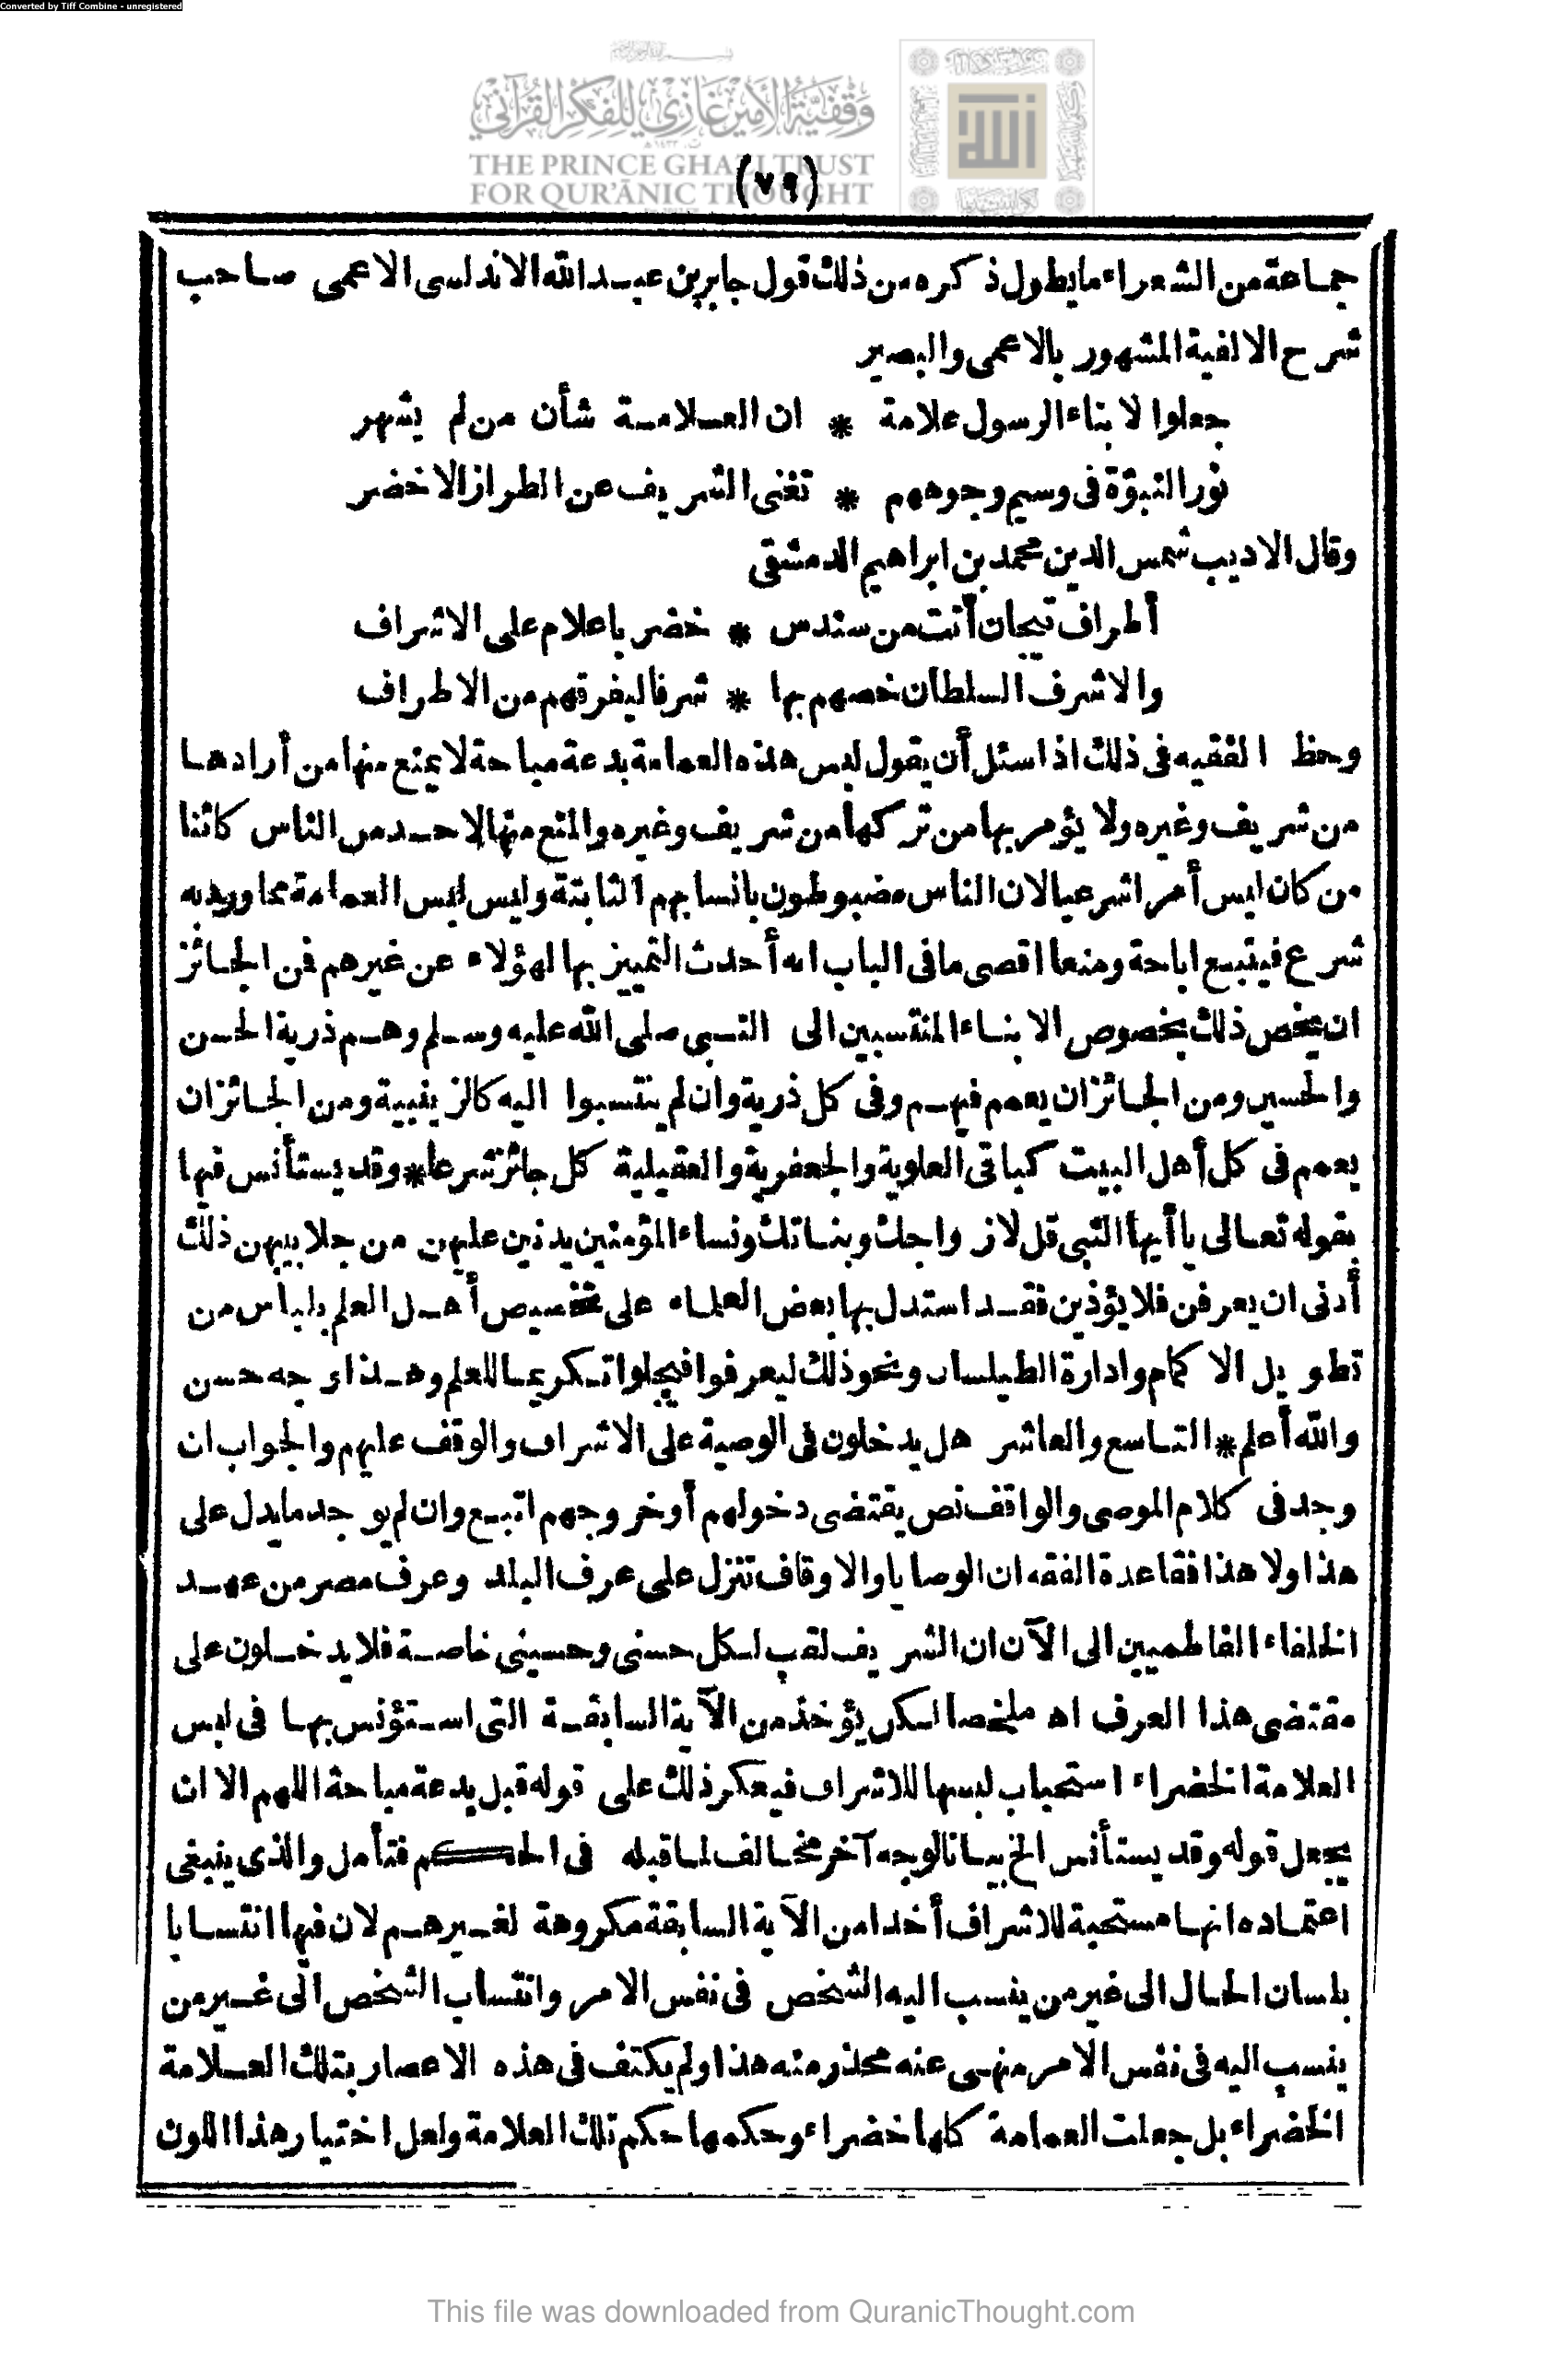 Converted by Tiff Combine - unregistered
وقفية الأمير غازي للفكر القرآني
THE PRINCE GHAZI TRUST
FOR QUR'ĀNIC THOUGHT
(٧٩)
جماعة من الشعراء ما يطول ذكره من ذلك قول جابر بن عبد الله الاندلسى الاعمى صاحب
شرح الالفية المشهور بالاعمى والبصير
جعلوا لابناء الرسول علامة * ان العلامة شأن من لم يشهر
نور النبوّة فى وسيم وجوههم * تغنى الشريف عن الطراز الاخضر
وقال الاديب شمس الدين محمد بن ابراهيم الدمشقى
أطراف تيجان أتت من سندس * خضر باعلام على الاشراف
والاشرف السلطان خصهم بها * شرفا ليفرقهم من الاطراف
وحظ الفقيه فى ذلك اذا سئل أن يقول لبس هذه العمامة بدعة مباحة لا يمنع منها من أرادها
من شريف وغيره ولا يؤمر بها من تركها من شريف وغيره والمنع منها لاحد من الناس كائنا
من كان ليس أمرا شرعيا لان الناس مضبوطون بانسابهم الثابتة وليس لبس العمامة مما ورد به
شرع فيتبع اباحة ومنعا اقصى ما فى الباب انه أحدث التمييز بها لهؤلاء عن غيرهم فمن الجائز
ان يخص ذلك بخصوص الابناء المنتسبين الى النبى صلى الله عليه وسلم وهم ذرية الحسن
والحسين ومن الجائز ان يعمم فيهم وفى كل ذرية وان لم ينتسبوا اليه كالزينبية ومن الجائز ان
يعمم فى كل أهل البيت كباقى العلوية والجعفرية والعقيلية كل جائز شرعا * وقد يستأنس فيها
بقوله تعالى يا أيها النبى قل لازواجك وبناتك ونساء المؤمنين يدنين عليهن من جلابيبهن ذلك
أدنى ان يعرفن فلا يؤذين فقد استدل بها بعض العلماء على تخصيص أهل العلم بلباس من
تطويل الاكمام وادارة الطيلسان ونحو ذلك ليعرفوا فيجلوا تكريما للعلم وهذا وجه حسن
والله أعلم * التاسع والعاشر هل يدخلون فى الوصية على الاشراف والوقف عليهم والجواب ان
وجد فى كلام الموصى والواقف نص يقتضى دخولهم أو خروجهم اتبع وان لم يوجد ما يدل على
هذا ولا هذا فقاعدة الفقه ان الوصايا والاوقاف تنزل على عرف البلد وعرف مصر من عهد
الخلفاء الفاطميين الى الآن ان الشريف لقب لكل حسنى وحسينى خاصة فلا يدخلون على
مقتضى هذا العرف اه ملخصا لكن يؤخذ من الآية السابقة التى استؤنس بها فى لبس
العلامة الخضراء استحباب لبسها للاشراف فيعكر ذلك على قوله قبل بدعة مباحة اللهم الا ان
يجعل قوله وقد يستأنس الخ بيانا لوجه آخر مخالف لما قبله فى الحكم فتأمل والذى ينبغى
اعتماده انها مستحبة للاشراف أخذا من الآية السابقة مكروهة لغيرهم لان فيها انتسابا
بلسان الحال الى غير من ينسب اليه الشخص فى نفس الامر وانتساب الشخص الى غير من
ينسب اليه فى نفس الامر منهى عنه محذر منه هذا ولم يكتف فى هذه الاعصار بتلك العلامة
الخضراء بل جعلت العمامة كلها خضراء وحكمها حكم تلك العلامة ولعل اختيار هذا اللون
This file was downloaded from QuranicThought.com